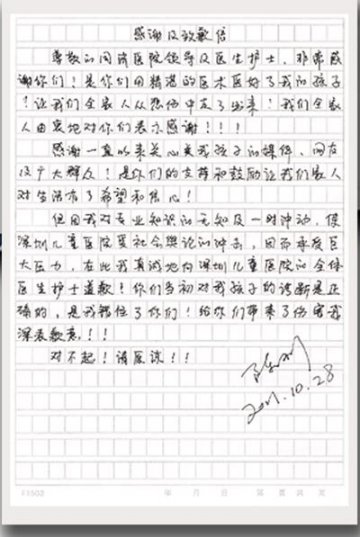 感谢及致歉信
尊敬的同济医院领导及医生护士，非常感
谢你们！是你们用精湛的医术医好了我的孩子
！让我们全家人从悲伤中走了出来！我们全家
人由衷地对你们表示感谢！！！
感谢一直以来关心关爱孩子的媒体、网友
及广大群众！是你们的支持和鼓励让我们家人
对生活有了希望和信心！
但因我对专业知识的无知及一时冲动，使
深圳儿童医院受社会舆论的冲击，因而承受巨
大压力，在此我真诚地向深圳儿童医院的全体
医生护士道歉！你们当初对我孩子的诊断是正
确的，是我错怪了你们！给你们带来了伤害我
深表歉意！！！
对不起！请原谅！！
2011.10.28
年 月 日 第 页 共 页